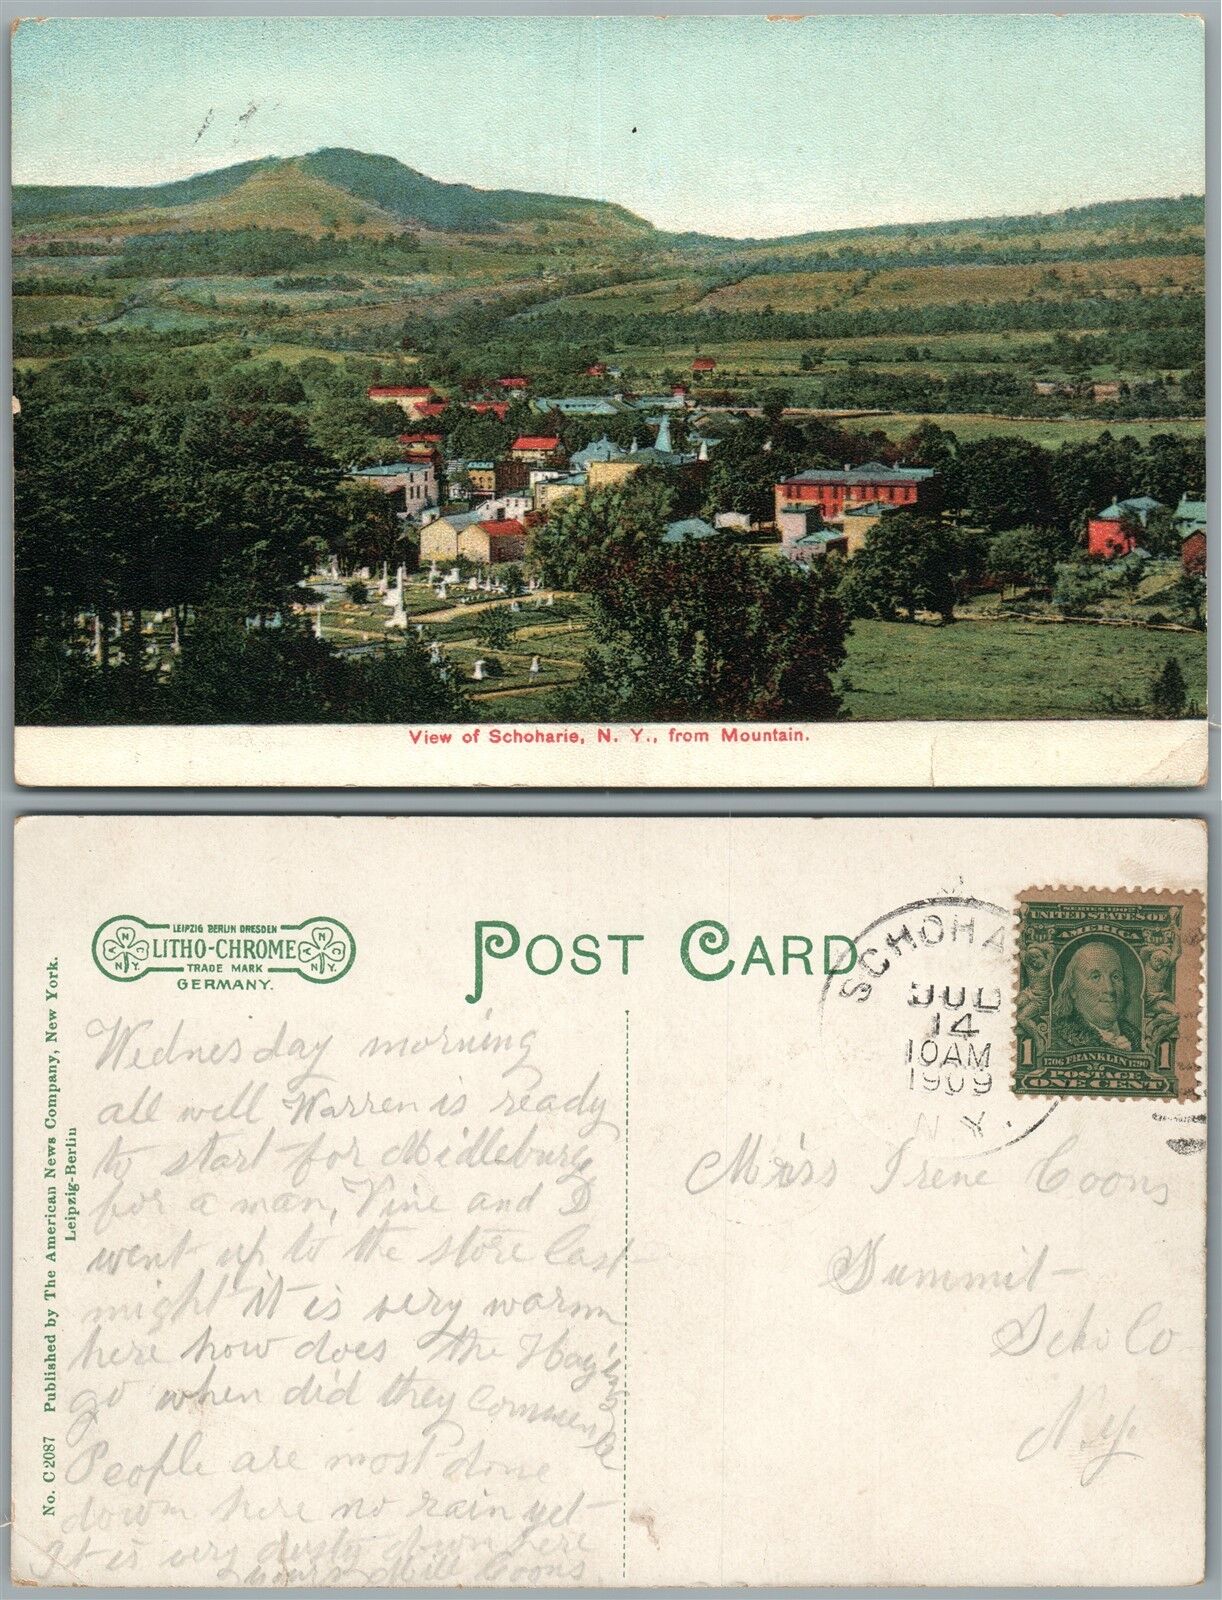 View of Schoharie, N. Y., from Mountain.
LEIPZIG BERLIN DRESDEN
LITHO-CHROME
TRADE MARK
GERMANY.
N N.Y.
N N.Y.
POST CARD
SCHOHA
JUL
14
10AM
1909
N.Y.
SERIES 1902
UNITED STATES OF
AMERICA
1 1
1706 FRANKLIN 1790
POSTAGE
ONE CENT
No. C 2087 Published by The American News Company, New York.
Leipzig-Berlin
Wednesday morning
all well Warren is ready
to start for Middleburg
for a man, Vine and I
went up to the store last
night it is very warm
here how does the Haying
go when did they commence
People are most done
down here no rain yet
It is very dusty down here
yours Mill Coons
Miss Irene Coons
Summit
Scho Co
N.Y.